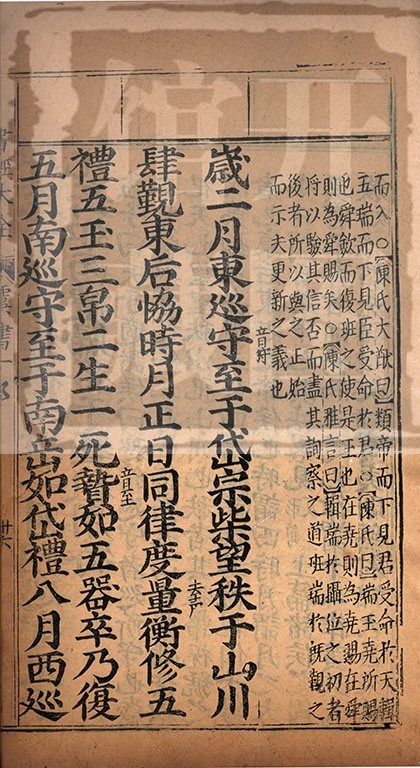 而入○陳氏大猷曰類帝而下見君受命於天輯
五瑞而下見臣受命於君○陳氏曰瑞玉堯所賜
也舜斂而復班之使是王也在堯則為堯賜在舜
則為舜賜矣○陳氏雅言曰輯瑞於攝位之初者
將以驗其信否而盡其詢察之道班瑞於既覲之
後者所以與之正始
而示夫更新之義也
歲二月東巡守音狩至于岱宗柴望秩于山川
肆覲東后恊時月正日同律度量去聲衡修五
禮五玉三帛二生一死贄音至如五器卒乃復
五月南巡守至于南岳如岱禮八月西巡
書經大全
虞書一